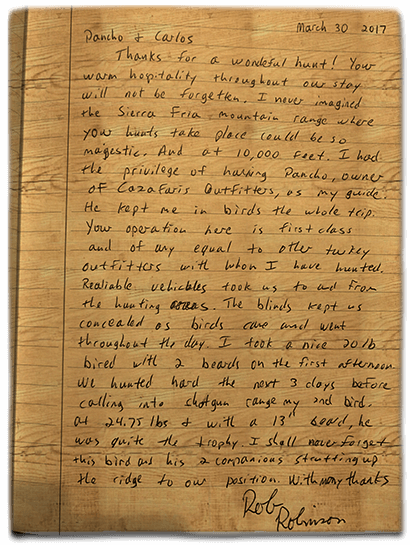 March 30 2017
Pancho & Carlos
Thanks for a wondeful hunt! Your
warm hopitality throughout our stay
will not be forgetten. I never imagined
the Sierra Fria mountain range where
your hunts take place could be so
magestic. And at 10,000 feet. I had
the privilege of having Pancho, owner
of Cazafaris Outfitters, as my guide.
He kept me in birds the whole trip.
Your operation here is first class
and of any equal to other turkey
outfitters with whon I have hunted.
Realiable vehicbles took us to and from
the hunting areas. The blinds kept us
concealed as birds came and went
throughout the day. I took a nice 20 lb
bired with 2 beards on the first afternoon.
We hunted hard the next 3 days before
calling into shotgun range my 2nd bird.
at 24.75 lbs & with a 13" beard, he
was quite the trophy. I shall never forget
this bird and his 2 companions strutting up
the ridge to our position. With many thanks
Rob
Robinson